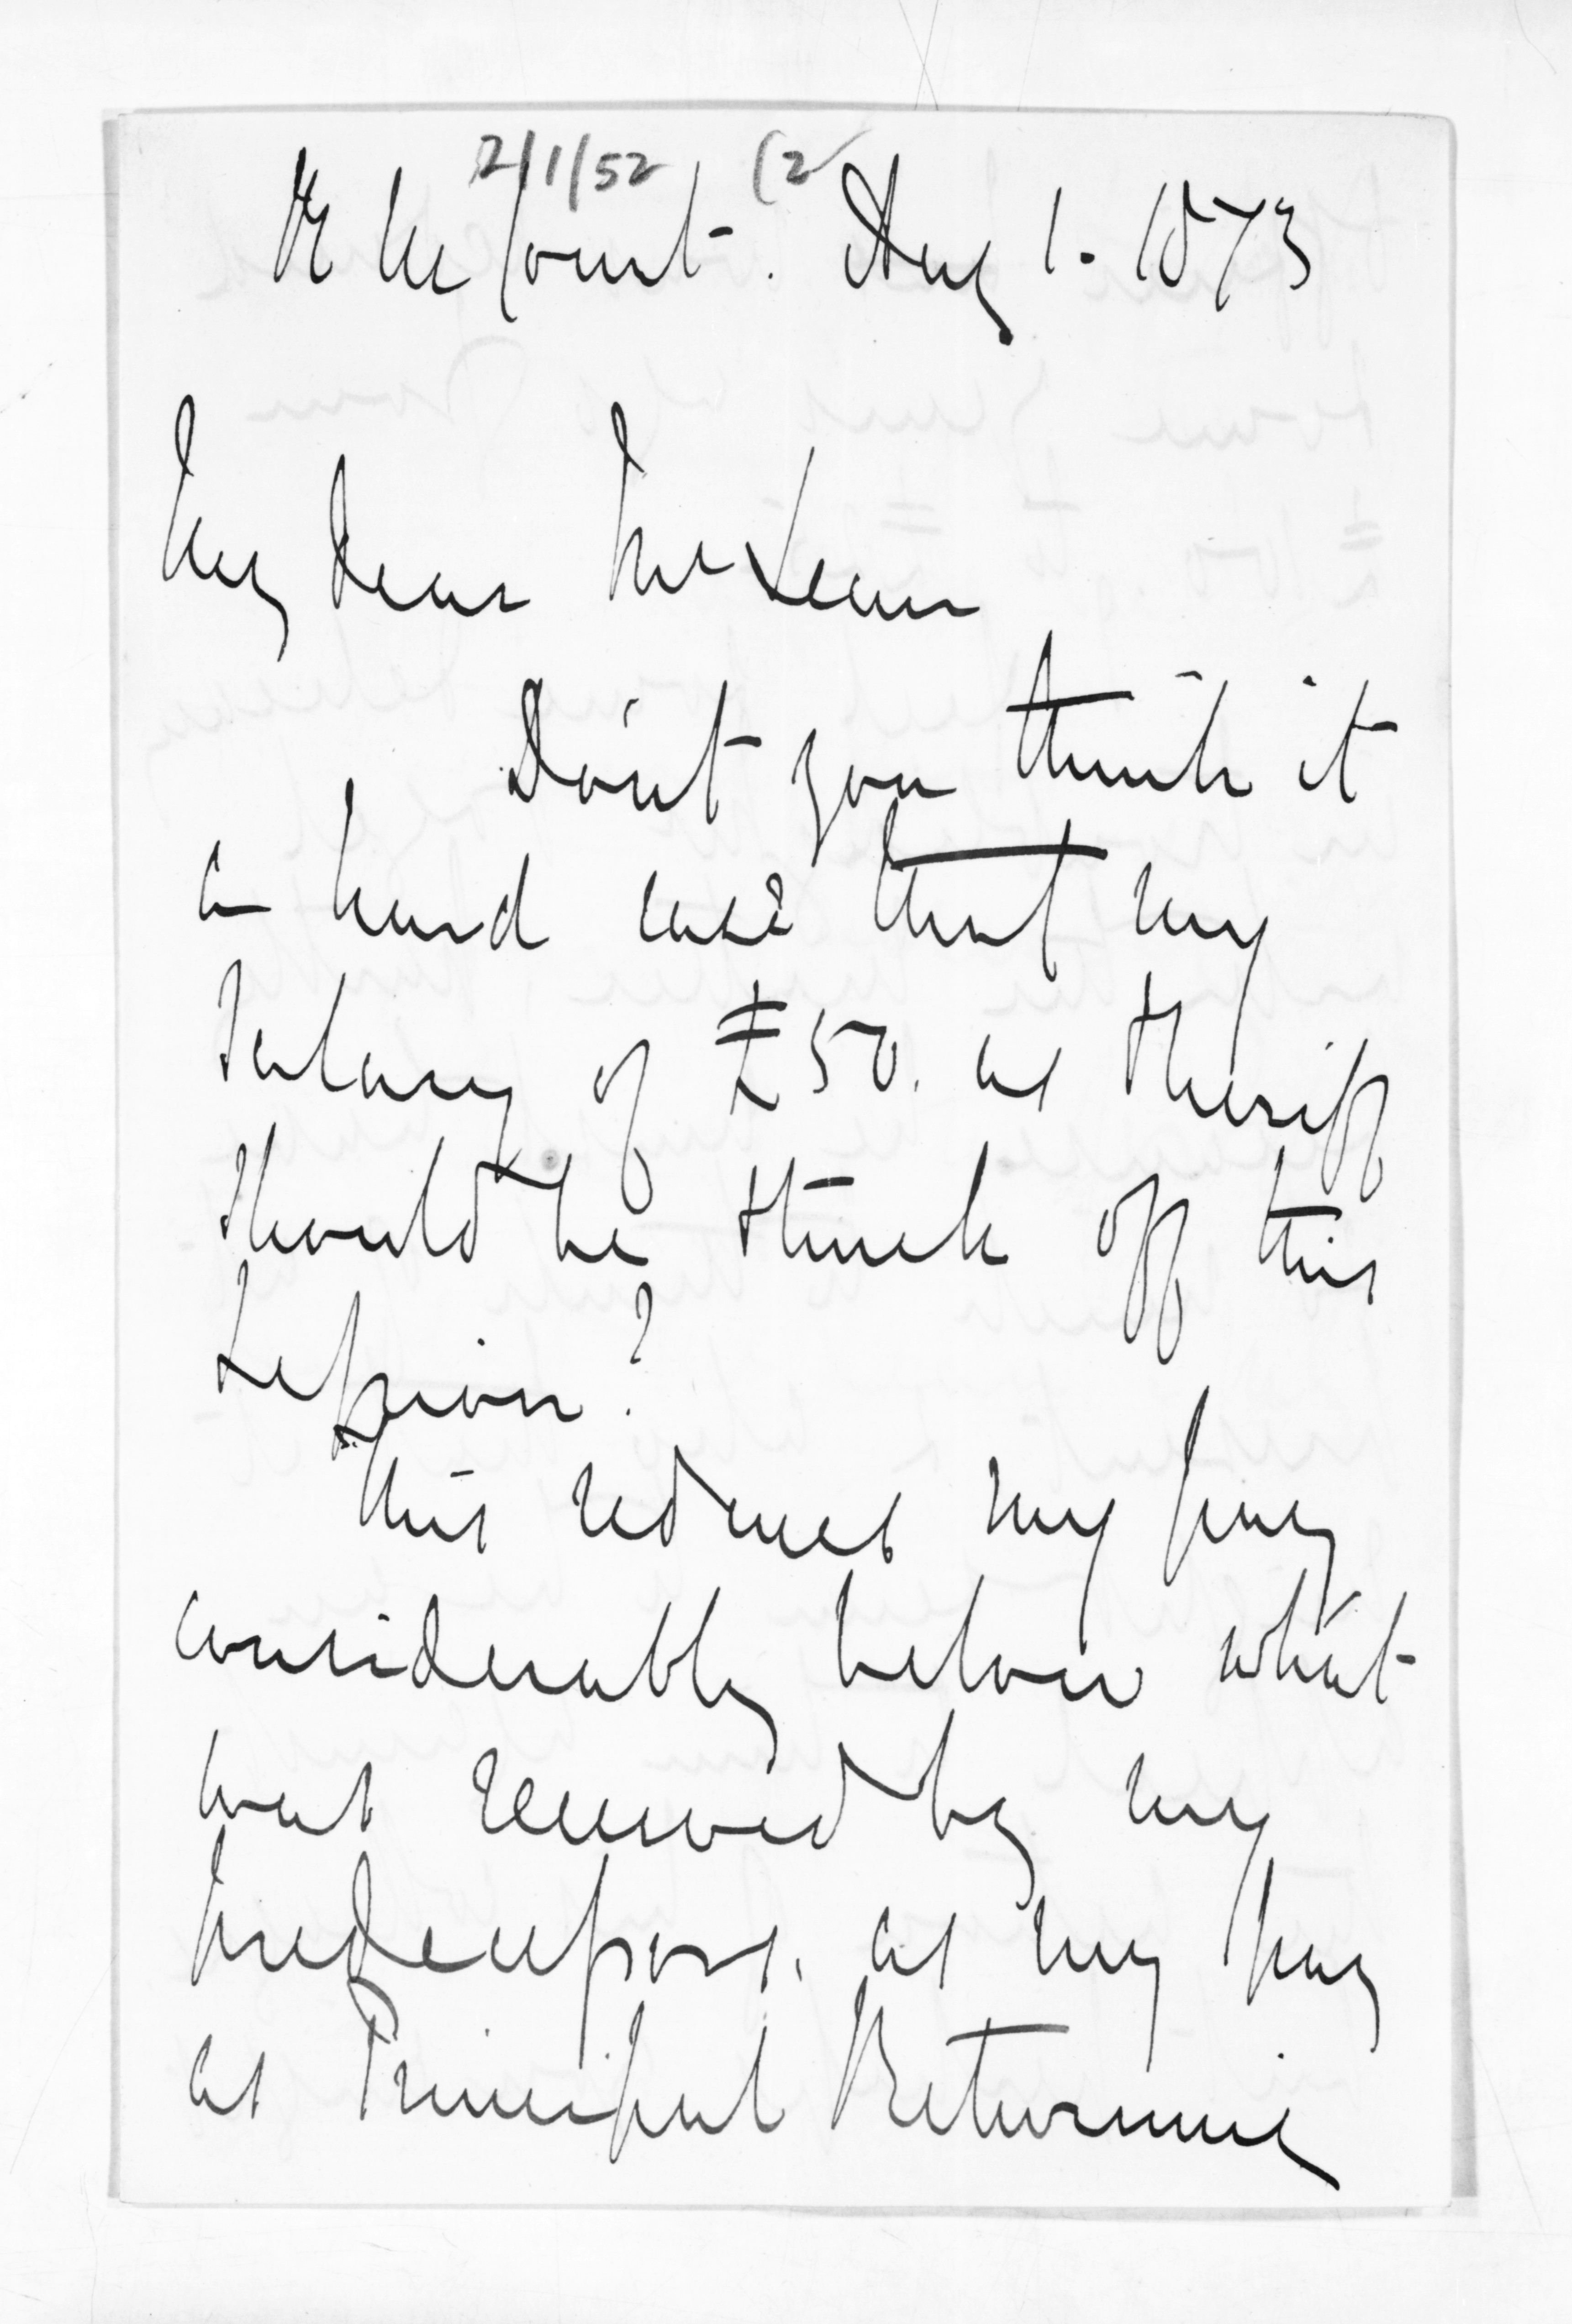 2/1/52 (2
R M Court. Aug 1. 1873
My dear McLean
Don't you think it
a hard case that my
salary of £50. as Sheriff
should be struck off this
Session?
This reduces my pay
considerably below what
was received by my
predecessors, as my pay
as Principal Returning